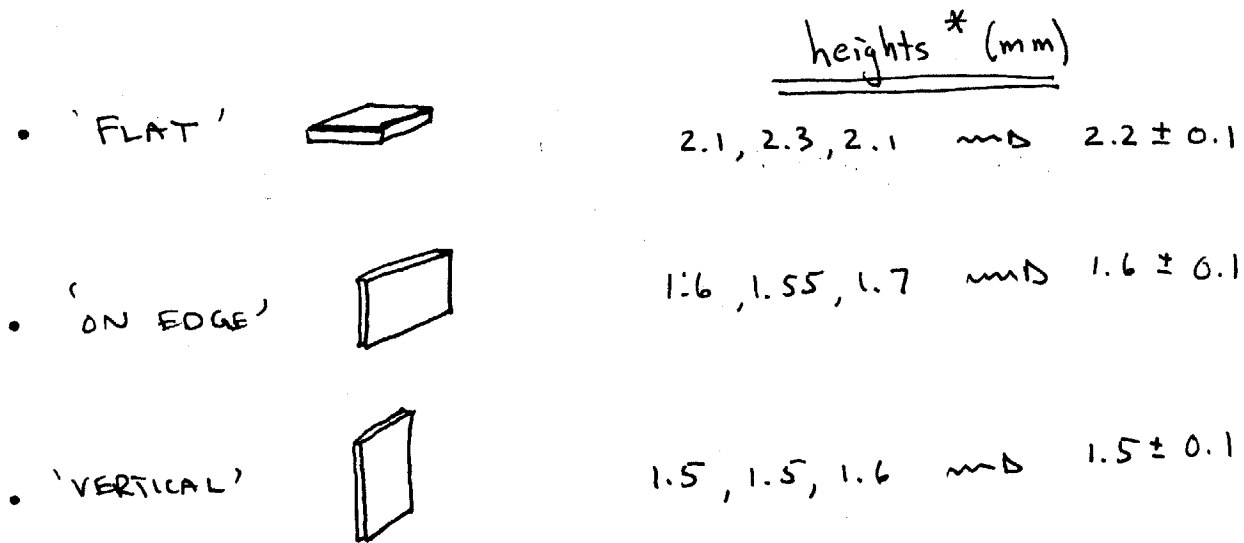 heights * (mm)
• 'FLAT' 2.1, 2.3, 2.1 → 2.2 ± 0.1
• 'ON EDGE' 1.6, 1.55, 1.7 → 1.6 ± 0.1
• 'VERTICAL' 1.5, 1.5, 1.6 → 1.5 ± 0.1